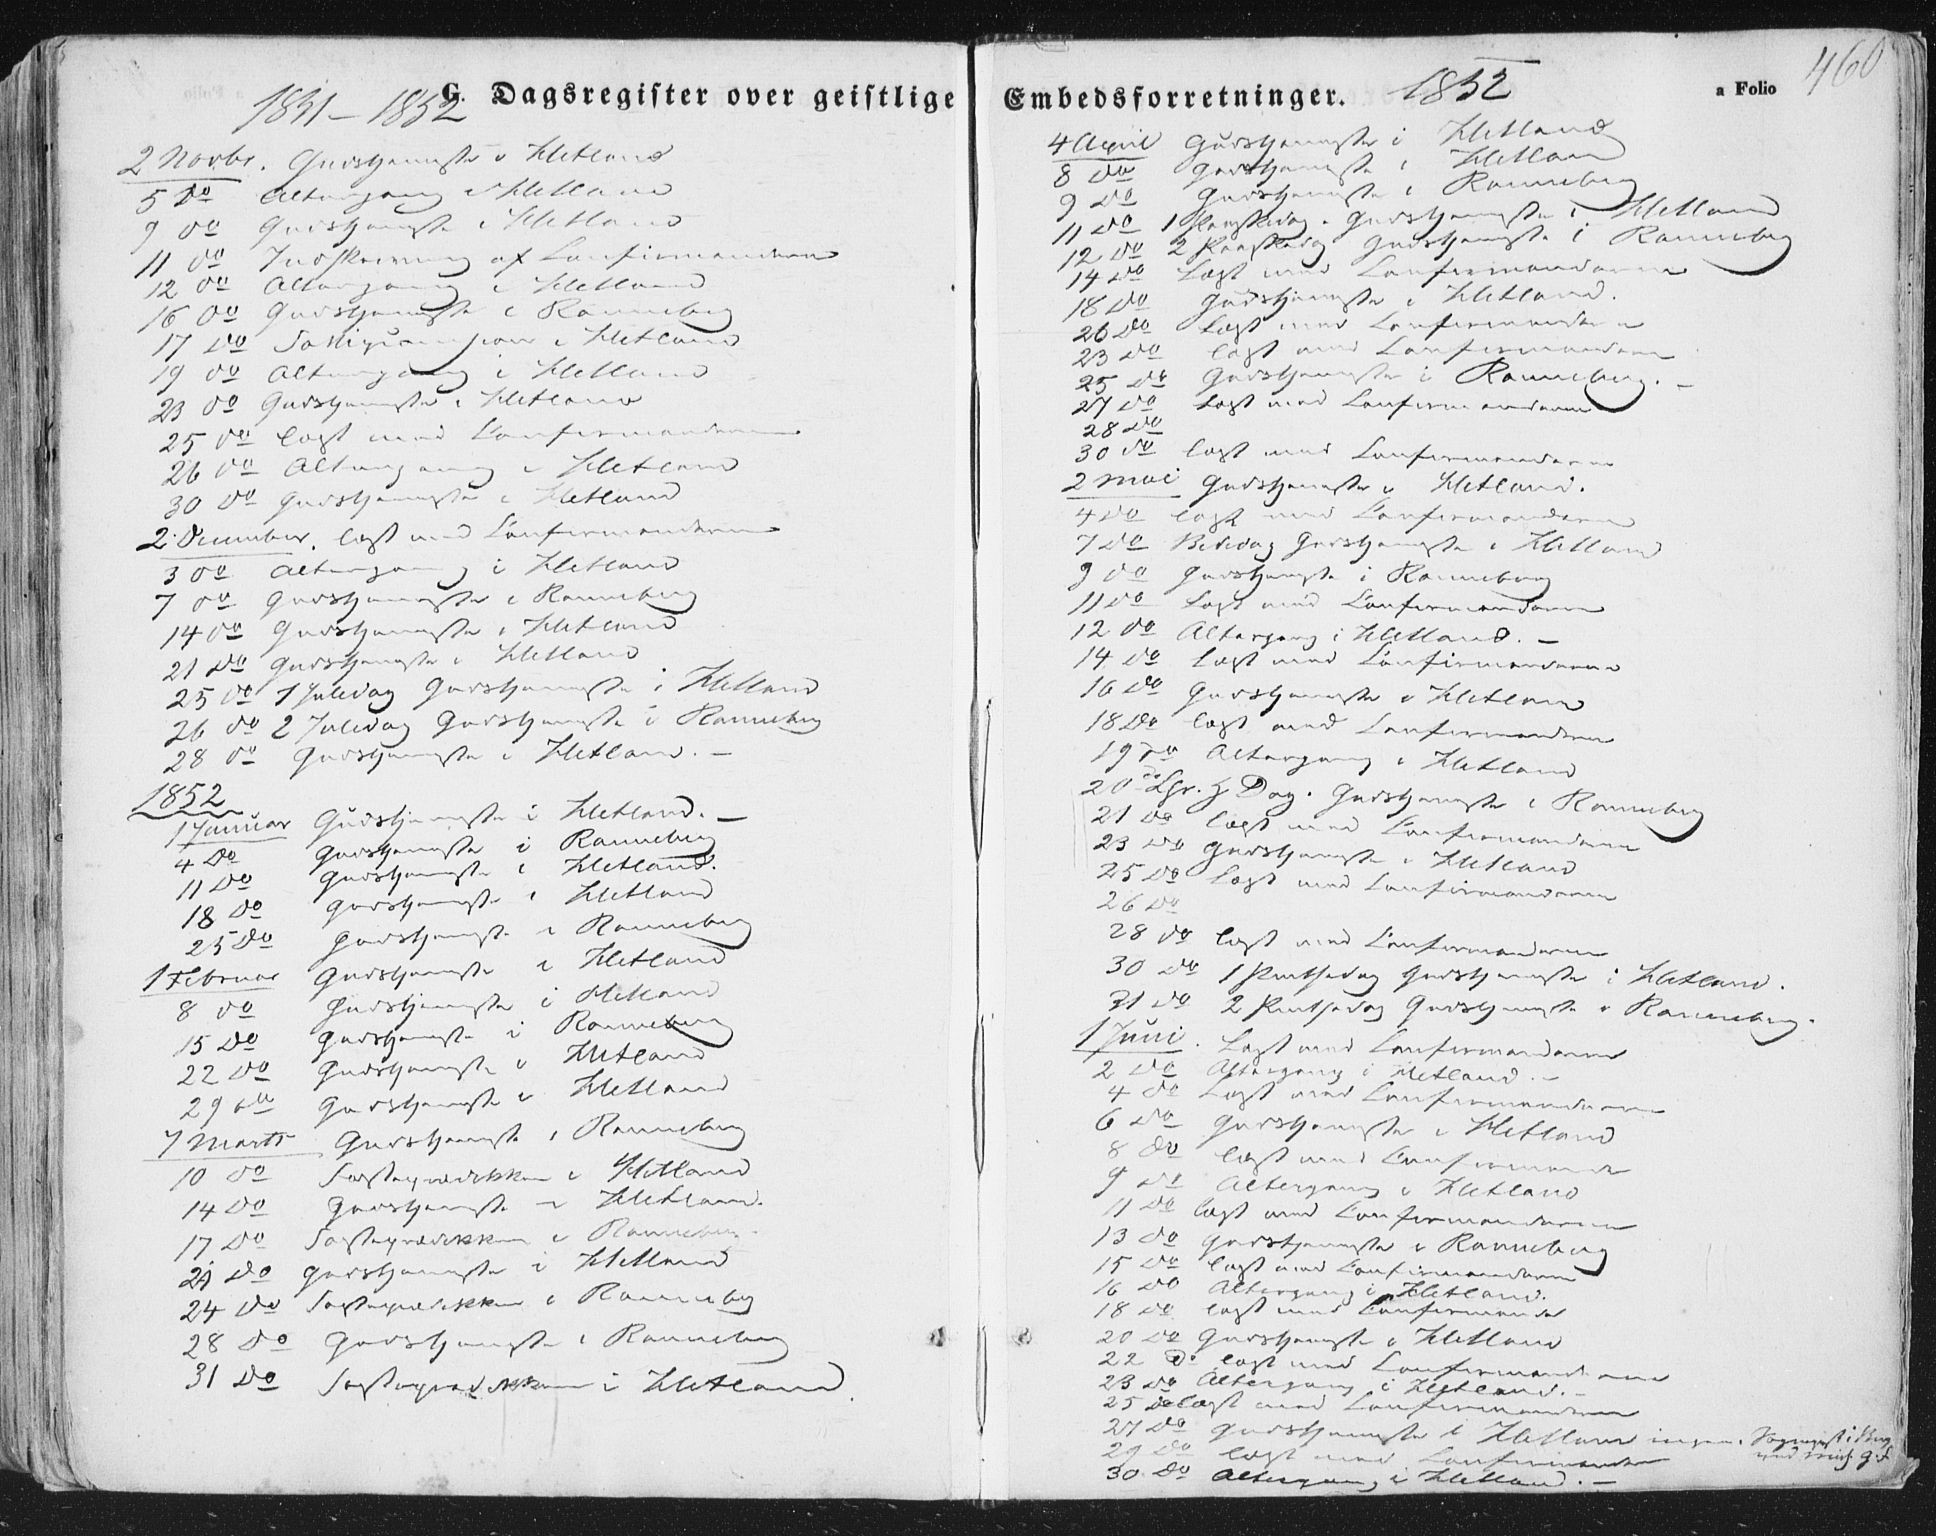 G. Dagsregister over geistlige Embedsforretninger.
1851 – 1852
1852
a Folio 460
2 Novbr. Gudstjeneste i Hetland
5 Do Altergang i Hetland
9 Do Gudstjeneste i Hetland
11 Do Indskrivning af Confirmanderne
12 Do Altergang i Hetland
16 Do Gudstjeneste i Ranneberg
17 Do i Hetland
19 Do Altergang i Hetland
23 Do Gudstjeneste i Hetland
25 Do læst med Confirmanderne
26 Do Altergang i Hetland
30 Do Gudstjeneste i Hetland
2 December. læst med Confirmanderne
3 Do Altergang i Hetland
7 Do Gudstjeneste i Ranneberg
14 Do Gudstjeneste i Hetland
21 Do Gudstjeneste i Hetland
25 Do 1 Juledag Gudstjeneste i Hetland
26 Do 2 Juledag Gudstjeneste i Ranneberg
28 Do Gudstjeneste i Hetland. –
1852
1 Januar Gudstjeneste i Hetland. –
4 Do Gudstjeneste i Ranneberg
11 Do Gudstjeneste i Hetland.
18 Do Gudstjeneste i Hetland
25 Do Gudstjeneste i Ranneberg
1 Februar Gudstjeneste i Hetland
8 Do Gudstjeneste i Hetland
15 Do Gudstjeneste i Ranneberg
22 Do Gudstjeneste i Hetland
29 Do Gudstjeneste i Hetland
7 Marts Gudstjeneste i Ranneberg
10 Do Fasteprædikken i Hetland
14 Do Gudstjeneste i Hetland.
17 Do Fasteprædikken i Ranneberg.
21 Do Gudstjeneste i Hetland
24 Do Fasteprædikken i Ranneberg
28 Do Gudstjeneste i Ranneberg
31 Do Fasteprædikken i Hetland.
4 April Gudstjeneste i Hetland
8 Do Gudstjeneste i Hetland
9 Do Gudstjeneste i Ranneberg
11 Do 1 Paaskedag. Gudstjeneste i Hetland
12 Do 2 Paaskedag Gudstjeneste i Ranneberg
14 Do Læst med Confirmanderne
18 Do Gudstjeneste i Hetland.
20 Do Læst med Confirmanderne
23 Do læst med Confirmanderne
25 Do Gudstjeneste i Ranneberg. –
27 Do Læst med Confirmanderne
28 Do
30 Do læst med Confirmanderne
2 Mai Gudstjeneste i Hetland.
4 Do læst med Confirmanderne
7 Do Bededag Gudstjeneste i Hetland
9 Do Gudstjeneste i Ranneberg
11 Do Læst med Confirmanderne
12 Do Altergang i Hetland. –
14 Do Læst med Confirmanderne
16 Do Gudstjeneste i Hetland
18 Do læst med Confirmanderne
19 Do Altergang i Hetland
20 do Dag. Gudstjeneste i Ranneberg
21 Do læst med Confirmanderne
23 Do Gudstjeneste i Hetland
25 Do Læst med Confirmanderne
26 Do
28 Do læst med Confirmanderne
30 Do 1 Pintsedag Gudstjeneste i Hetland.
31 Do 2 Pintsedag Gudstjeneste i Ranneberg.
1 Juni. Læst med Confirmanderne
2 Do Altergang i Hetland. –
4 Do Læst med Confirmanderne
6 Do Gudstjeneste i Hetland
8 Do læst med Confirmande
9 Do Altergang i Hetland
11 Do læst med Confirmanderne
13 Do Gudstjeneste i Ranneberg
15 Do læst med Confirmanderne
16 Do Altergang i Hetland.
18 Do læst med Confirmander
20 Do Gudstjeneste i Hetland
22 Do læst med Confirmanderne
23 Do Altergang i Hetland. –
25 Do læst med Confirmanderne
27 Do Gudstjeneste i Hetland ingen.
29 Do læst med Confirmander
30 Do Altergang i Hetland. –